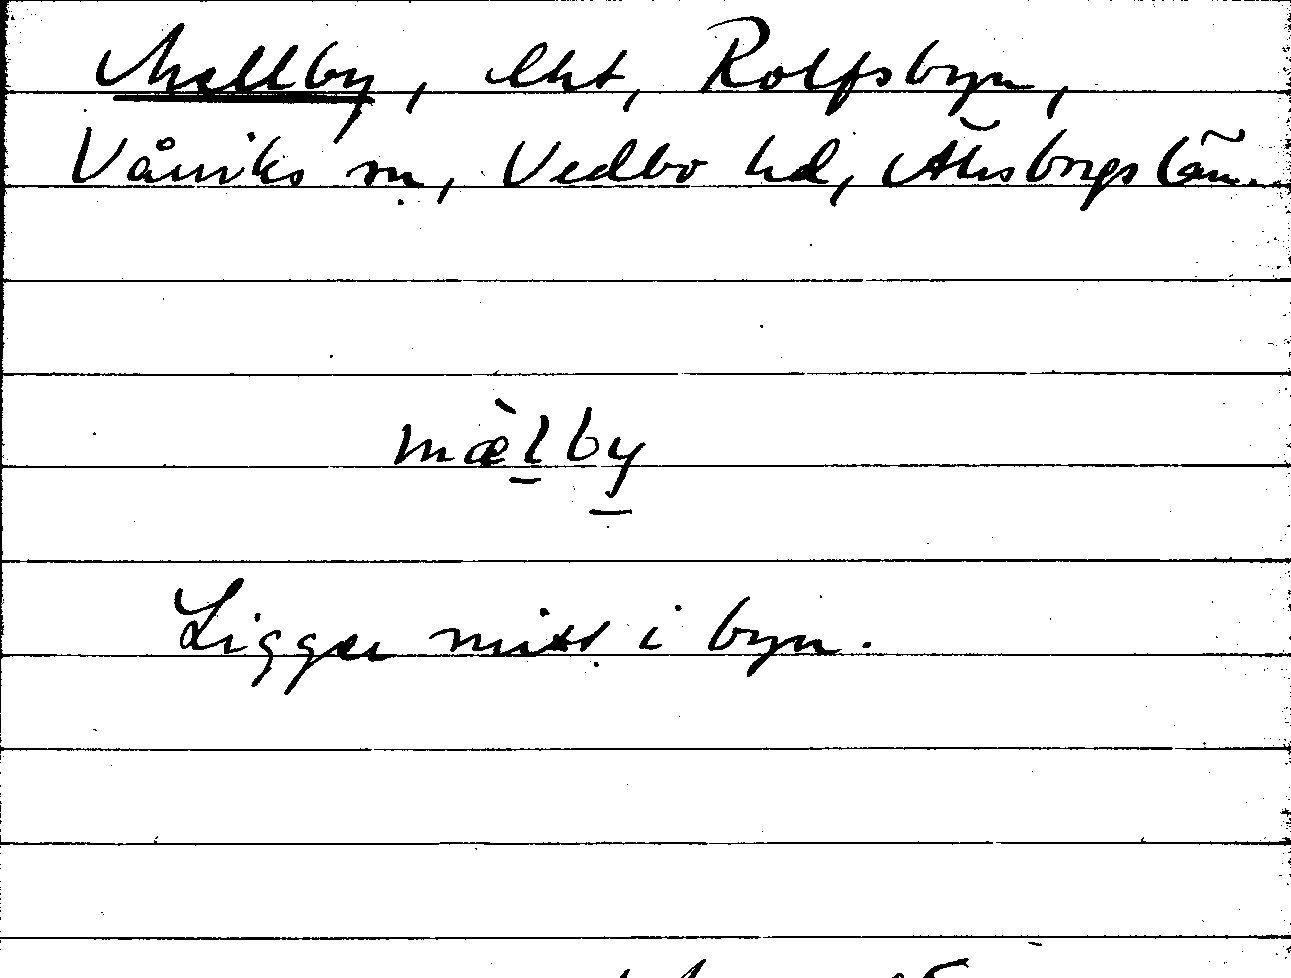 Mellby, lht, Rolfsbyn,
Vårviks sn, Vedbo hd, Älvsborgs län.
mæ̀lby
Ligger mitt i byn.